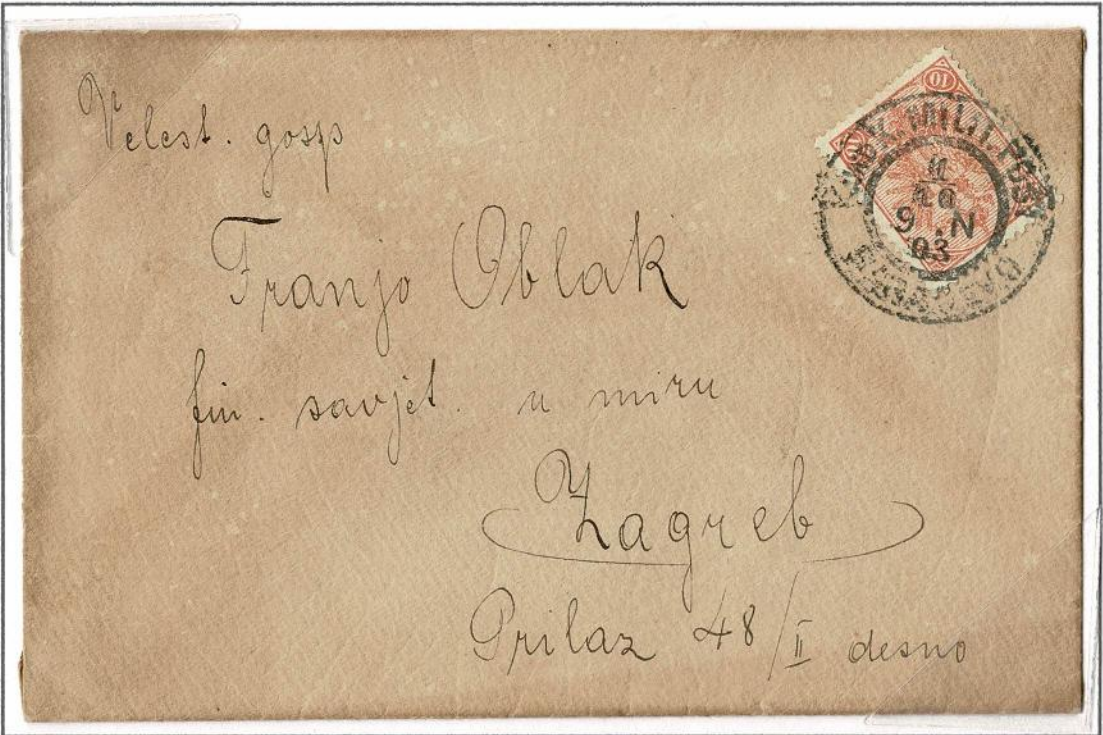 Velest. gosp
Franjo Oblak
fin. savjet. u miru
Zagreb
Prilaz 48/II desno
10
10
K. u. K. MILIT. POST
9 .N
03
SARAJEVO